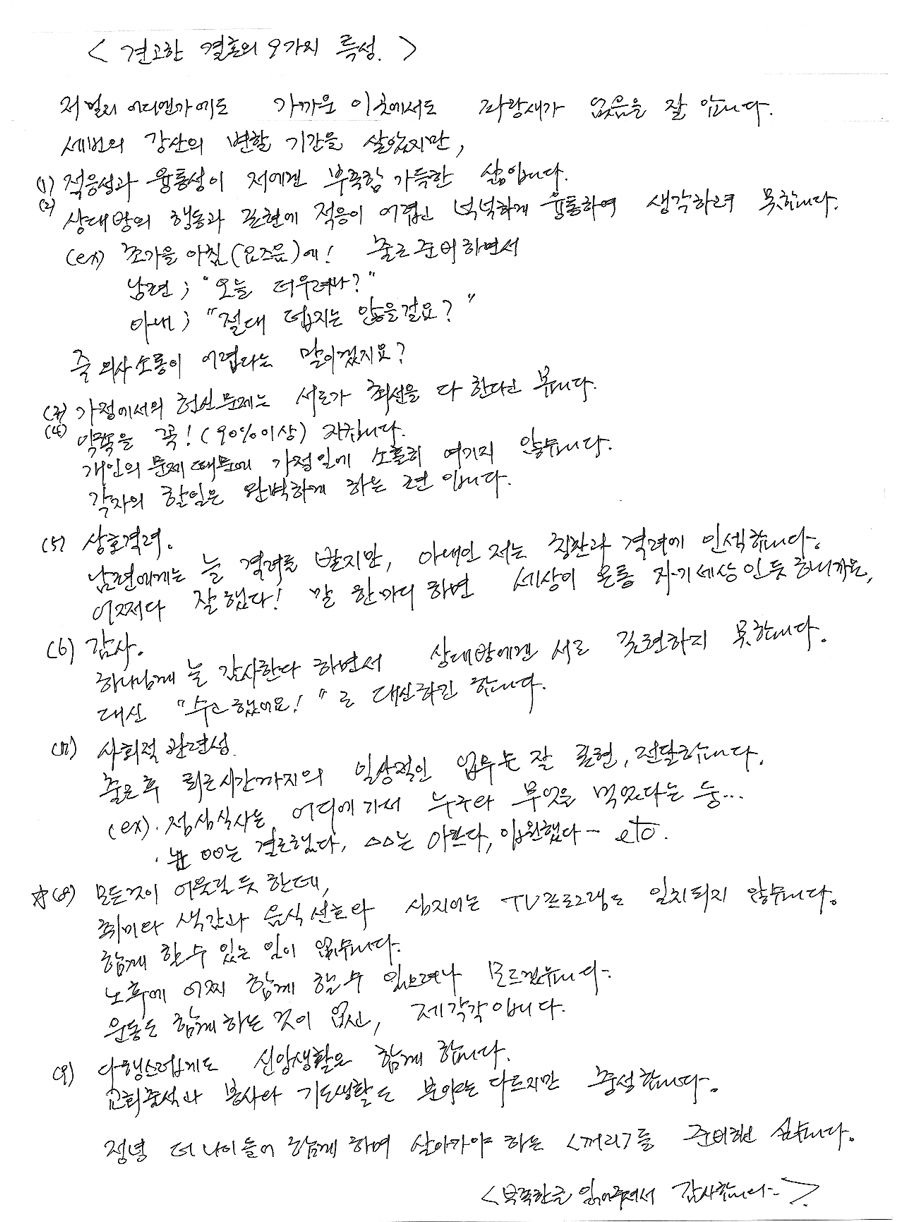 < 견고한 결혼의 9가지 특성. >
저 멀리 어디엔가에도 가까운 이웃에서도 파랑새가 없음을 잘 압니다.
세번의 강산의 변할 기간을 살았지만,
(1) 적응성과 융통성이 저에겐 부족함 가득한 삶입니다.
(2) 상대방의 행동과 표현에 적응이 어렵고 넉넉하게 융통하여 생각하려 못합니다.
(ex) 초가을 아침(요즈음)에! 출근 준비하면서
남편 ; "오늘 더우려나?"
아내 ; "절대 덥지는 않을걸요?"
즉 의사소통이 어렵다는 말이겠지요?
(3) 가정에서의 헌신문제는 서로가 최선을 다 한다고 봅니다.
(4) 약속을 꼭! (90%이상) 지킵니다.
개인의 문제 때문에 가정일에 소홀히 여기지 않습니다.
각자의 할일은 완벽하게 하는 편 입니다.
(5) 상호격려.
남편에게는 늘 격려를 받지만, 아내인 저는 칭찬과 격려에 인색합니다.
어쩌다 잘했다! 말 한마디 하면 세상이 온통 자기세상인듯 하니까는,
(6) 감사.
하나님께 늘 감사한다 하면서 상대방에겐 서로 표현하지 못합니다.
대신 "수고했어요!"로 대신하긴 합니다.
(7) 사회적 관련성.
출근후 퇴근시간까지의 일상적인 업무는 잘 표현, 전달합니다.
(ex) · 점심식사는 어디에 가서 누구와 무엇을 먹었다는 둥...
· OO는 결혼했다, △△는 아프다, 입원했다 - etc.
☆(8) 모든것이 어울릴 듯 한데,
취미와 색깔과 음식 선호와 심지어는 TV프로그램도 일치되지 않습니다.
함께 할수 있는 일이 없습니다.
노후에 어찌 함께 할수 있으려나 모르겠습니다.
운동도 함께하는 것이 없고, 제각각입니다.
(9) 다행스럽게도 신앙생활은 함께 합니다.
교회출석과 봉사와 기도생활도 분야는 다르지만 출석합니다.
정녕 더 나이들어 함께 하며 살아가야 하는 <꺼리>를 준비하고 싶습니다.
<부족한글 읽어주셔서 감사합니다->